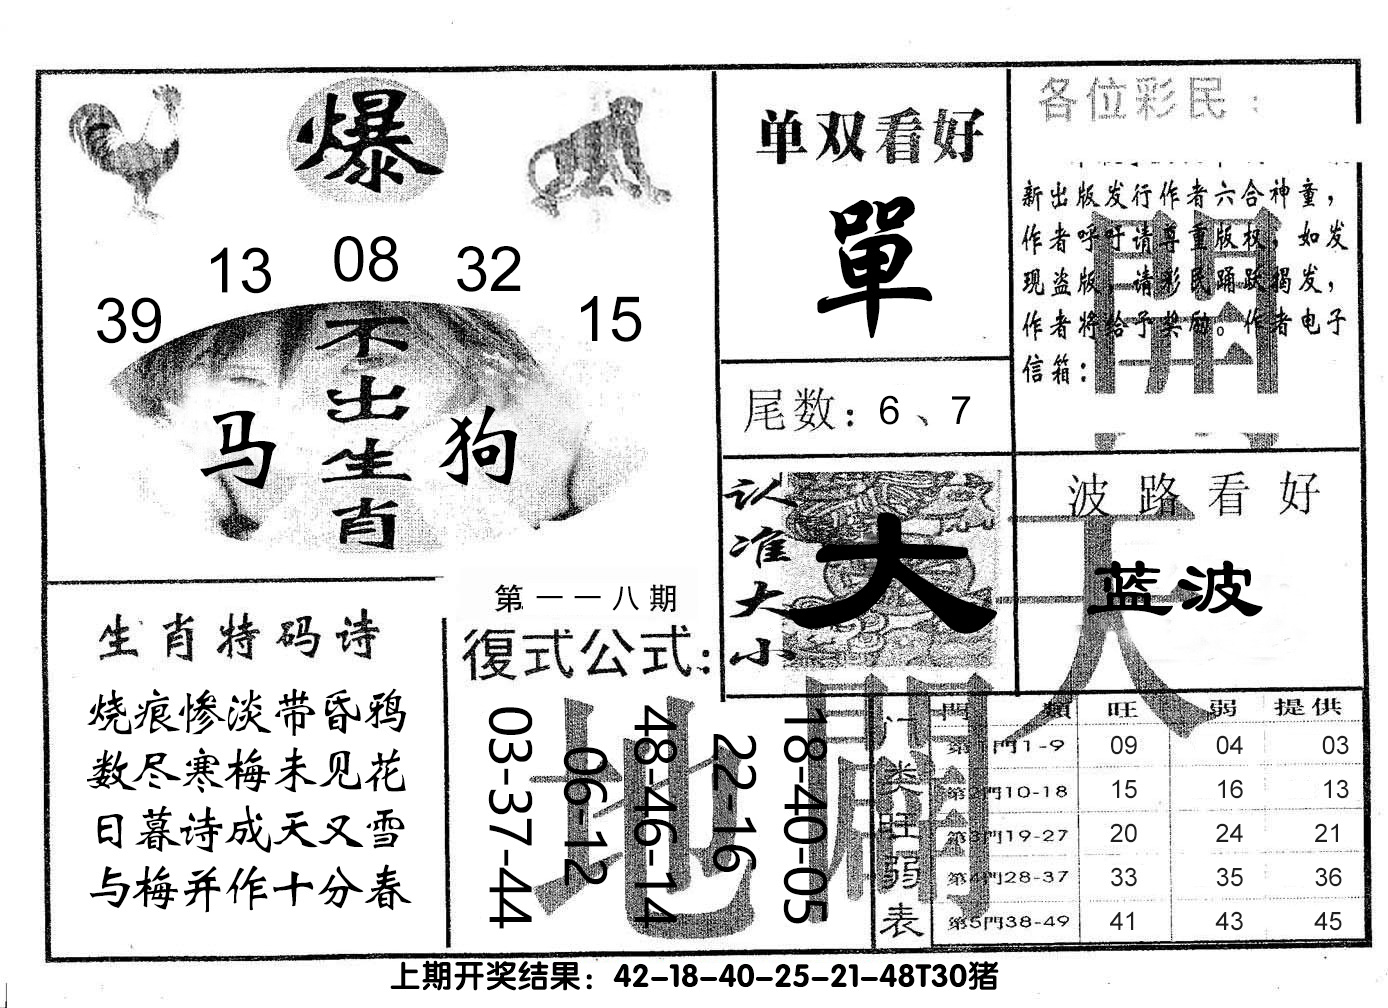 爆
39
13
08
32
15
不出生肖
马
狗
单双看好
單
尾数：6、7
认准大小
大
各位彩民：
新出版发行作者六合神童，
作者呼吁请尊重版权，如发
现盗版，请彩民踊跃揭发，
作者将给予奖励。作者电子
信箱：
波路看好
蓝波
生肖特码诗
烧痕惨淡带昏鸦
数尽寒梅未见花
日暮诗成天又雪
与梅并作十分春
第一一八期
復式公式：
03-37-44
06-12
48-46-14
22-16
18-40-05
天地
開
門类旺弱表
門 類 旺 弱 提供
第1門1-9 09 04 03
第2門10-18 15 16 13
第3門19-27 20 24 21
第4門28-37 33 35 36
第5門38-49 41 43 45
上期开奖结果：42-18-40-25-21-48T30猪